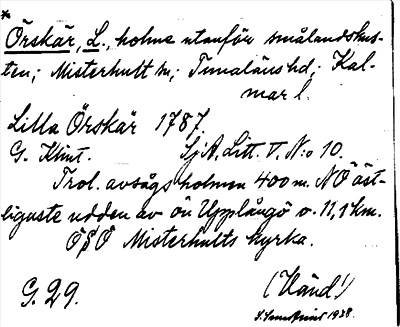 *
Örskär, L., holme utanför smålandskus-
ten; Misterhult sn; Tunaläns hd; Kal-
mar l.
Lilla Örskär 1787.
G. Klint. Sj.A, Litt. V, N:o 10.
Trol. avsågs holmen 400 m. NÖ öst-
ligaste udden av ön Upplångö o. 11,1 km.
ÖSÖ Misterhults kyrka.
G. 29. (Vänd!)
1938.